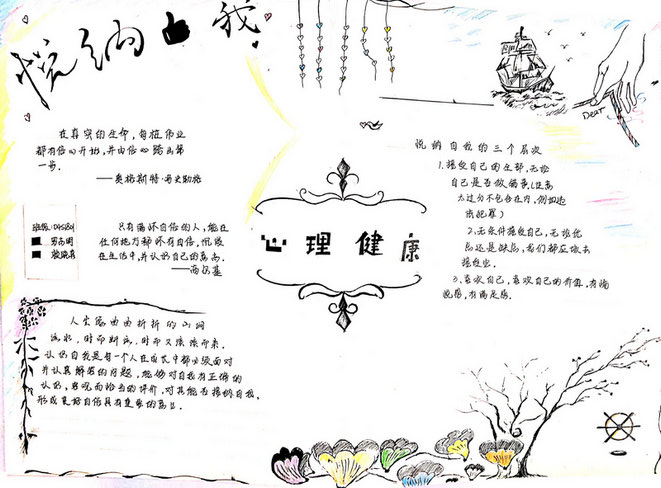 悦纳自我
在真实的生命，每桩伟业
都有信心开始，并由信心跨出第
一步。
——奥格斯特·冯史勒格
只有满怀自信的人，能在
任何地方都怀有自信，沉浸
在生活中，并认识自己的意志。
——高尔基
人生像曲曲折折的山涧
流水，时而断流，时而又滚滚而来。
认识自我是每一个人在成长中都必须面对
并认真解答的问题，能够对自我有正确的
认识，客观而恰当的评价，对其能否接纳自我，
形成良好自信具有重要的意义。
心理健康
Dear
悦纳自我的三个层次
1.接受自己的全部，无论
自己是否做错事(过高
太过分不包括在内，例如边
法犯罪)
2.无条件接受自己，无论优
点还是缺点，我们都应该去
接受它。
3.喜欢自己，喜欢自己的价值，有愉
悦感，有满足感。